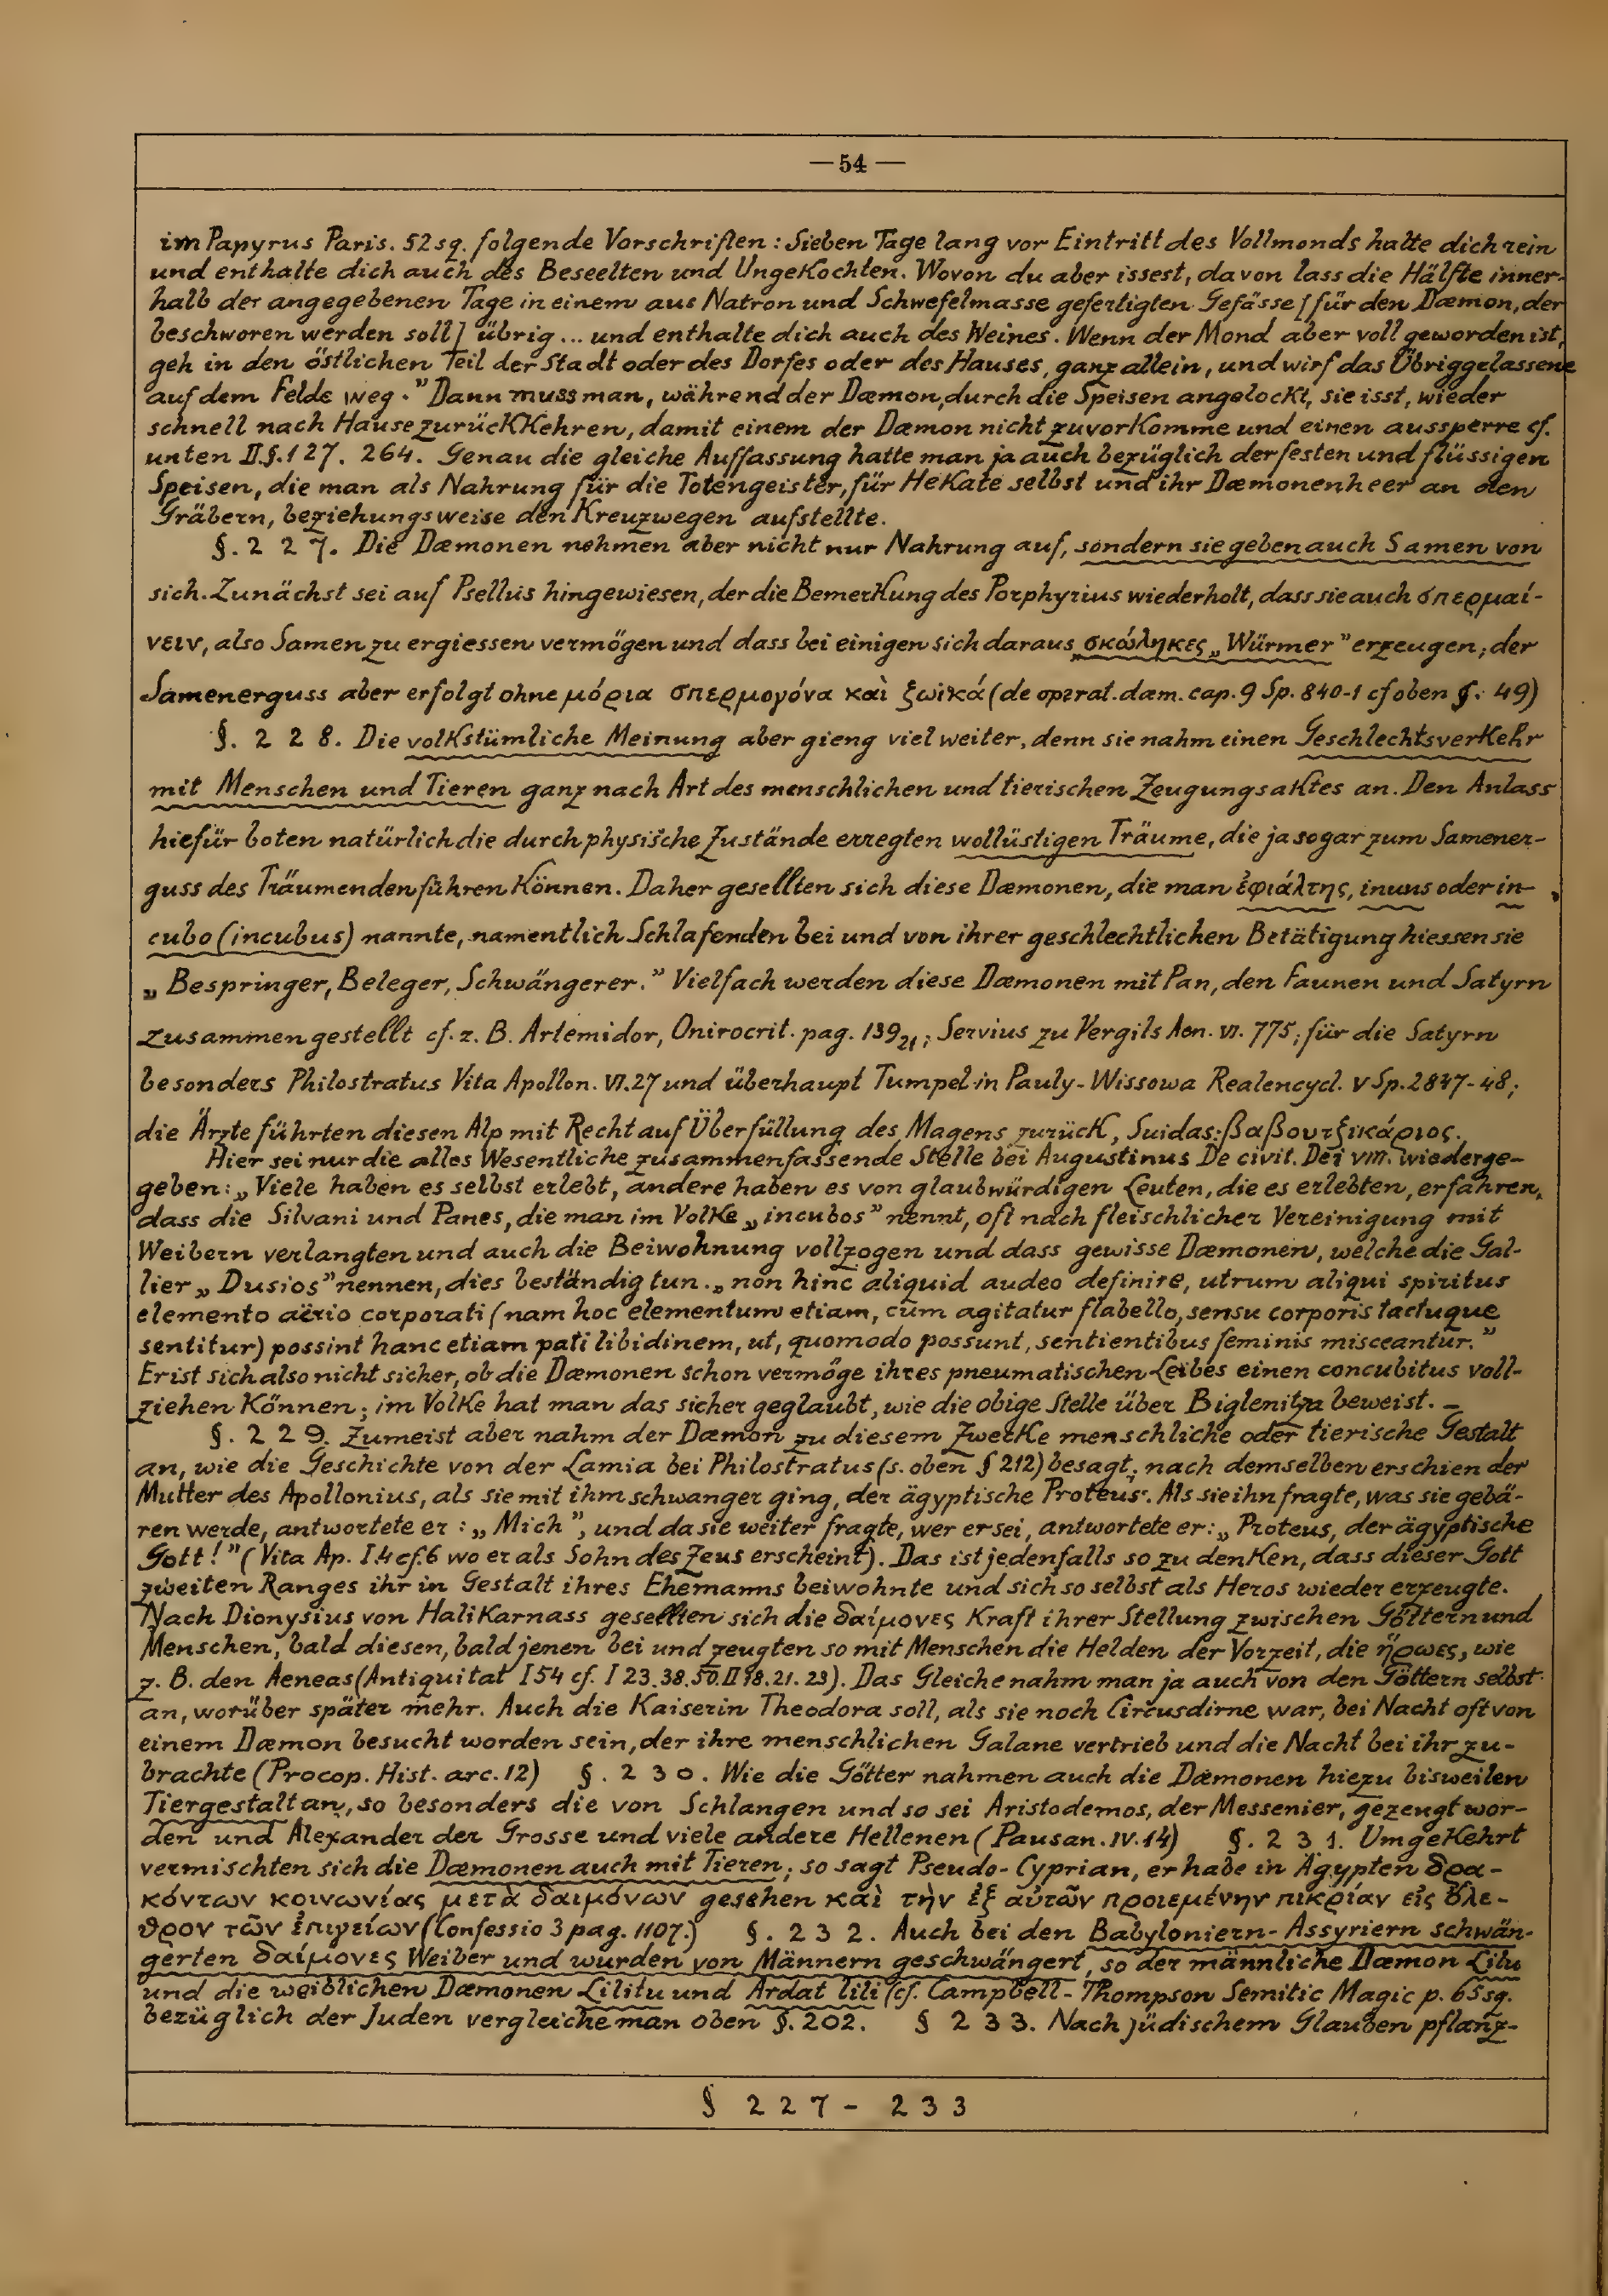 —54—
im Papyrus Paris. 52 sq. folgende Vorschriften: Sieben Tage lang vor Eintritt des Vollmonds halte dich rein
und enthalte dich auch des Beseelten und Ungekochten. Wovon du aber issest, davon lass die Hälfte inner-
halb der angegebenen Tage in einem aus Natron und Schwefelmasse gefertigten Gefässe [für den Dæmon, der
beschworen werden soll] übrig ... und enthalte dich auch des Weines. Wenn der Mond aber voll geworden ist,
geh in den östlichen Teil der Stadt oder des Dorfes oder des Hauses, ganz allein, und wirf das Übriggelassene
auf dem Felde weg." Dann muss man, während der Dæmon, durch die Speisen angelockt, sie isst, wieder
schnell nach Hause zurückkehren, damit einem der Dæmon nicht zuvorkomme und einen aussperre cf.
unten II.§.127. 264. Genau die gleiche Auffassung hatte man ja auch bezüglich der festen und flüssigen
Speisen, die man als Nahrung für die Totengeister, für Hekate selbst und ihr Dæmonenheer an den
Gräbern, beziehungsweise den Kreuzwegen aufstellte.
§. 2 2 7. Die Dæmonen nehmen aber nicht nur Nahrung auf, sondern sie geben auch Samen von
sich. Zunächst sei auf Psellus hingewiesen, der die Bemerkung des Porphyrius wiederholt, dass sie auch σπερμαί-
νειν, also Samen zu ergiessen vermögen und dass bei einigen sich daraus σκώληκες „Würmer" erzeugen; der
Samenerguss aber erfolgt ohne μόρια σπερμογόνα καὶ ζωικά (de operat. dæm. cap. 9 Sp. 840-1 cf oben §. 49)
§. 2 2 8. Die volkstümliche Meinung aber gieng viel weiter, denn sie nahm einen Geschlechtsverkehr
mit Menschen und Tieren ganz nach Art des menschlichen und tierischen Zeugungsaktes an. Den Anlass
hiefür boten natürlich die durch physische Zustände erregten wollüstigen Träume, die ja sogar zum Samener-
guss des Träumenden führen können. Daher gesellten sich diese Dæmonen, die man ἐφιάλτης, inuus oder in-
cubo (incubus) nannte, namentlich Schlafenden bei und von ihrer geschlechtlichen Betätigung hiessen sie
„Bespringer, Beleger, Schwängerer." Vielfach werden diese Dæmonen mit Pan, den Faunen und Satyrn
zusammengestellt cf. z. B. Artemidor, Onirocrit. pag. 139₂₁; Servius zu Vergils Aen. VI. 775; für die Satyrn
besonders Philostratus Vita Apollon. VI. 27 und überhaupt Tümpel in Pauly-Wissowa Realencycl. V Sp. 2847-48;
die Ärzte führten diesen Alp mit Recht auf Überfüllung des Magens zurück, Suidas: βαβουτζικάριος.
Hier sei nur die alles Wesentliche zusammenfassende Stelle bei Augustinus De civit. Dei VIII. wiederge-
geben: „Viele haben es selbst erlebt, andere haben es von glaubwürdigen Leuten, die es erlebten, erfahren,
dass die Silvani und Panes, die man im Volke „incubos" nennt, oft nach fleischlicher Vereinigung mit
Weibern verlangten und auch die Beiwohnung vollzogen und dass gewisse Dæmonen, welche die Gal-
lier „Dusios" nennen, dies beständig tun. „non hinc aliquid audeo definire, utrum aliqui spiritus
elemento aërio corporati (nam hoc elementum etiam, cum agitatur flabello, sensu corporis tactuque
sentitur) possint hanc etiam pati libidinem, ut, quomodo possunt, sentientibus feminis misceantur."
Er ist sich also nicht sicher, ob die Dæmonen schon vermöge ihres pneumatischen Leibes einen concubitus voll-
ziehen können; im Volke hat man das sicher geglaubt, wie die obige Stelle über Biglenitza beweist. —
§. 2 2 9. Zumeist aber nahm der Dæmon zu diesem Zwecke menschliche oder tierische Gestalt
an, wie die Geschichte von der Lamia bei Philostratus (s. oben § 212) besagt; nach demselben erschien der
Mutter des Apollonius, als sie mit ihm schwanger ging, der ägyptische Proteus. Als sie ihn fragte, was sie gebä-
ren werde, antwortete er: „Mich", und da sie weiter fragte, wer er sei, antwortete er: „Proteus, der ägyptische
Gott!" (Vita Ap. I.4 cf. 6 wo er als Sohn des Zeus erscheint). Das ist jedenfalls so zu denken, dass dieser Gott
zweiten Ranges ihr in Gestalt ihres Ehemanns beiwohnte und sich so selbst als Heros wieder erzeugte.
Nach Dionysius von Halikarnass gesellten sich die δαίμονες kraft ihrer Stellung zwischen Göttern und
Menschen, bald diesen, bald jenen bei und zeugten so mit Menschen die Helden der Vorzeit, die ἥρωες, wie
z. B. den Aeneas (Antiquitat I 54 cf. I 23. 38. 50. II 18. 21. 23). Das Gleiche nahm man ja auch von den Göttern selbst
an, worüber später mehr. Auch die Kaiserin Theodora soll, als sie noch Circusdirne war, bei Nacht oft von
einem Dæmon besucht worden sein, der ihre menschlichen Galane vertrieb und die Nacht bei ihr zu-
brachte (Procop. Hist. arc. 12) §. 2 3 0. Wie die Götter nahmen auch die Dæmonen hiezu bisweilen
Tiergestalt an, so besonders die von Schlangen und so sei Aristodemos, der Messenier, gezeugt wor-
den und Alexander der Grosse und viele andere Hellenen (Pausan. IV. 14) §. 2 3 1. Umgekehrt
vermischten sich die Dæmonen auch mit Tieren; so sagt Pseudo-Cyprian, er habe in Ägypten δρα-
κόντων κοινωνίας μετὰ δαιμόνων gesehen καὶ τὴν ἐξ αὐτῶν προιεμένην πικρίαν εἰς ὄλε-
θρον τῶν ἐπιγείων (Confessio 3 pag. 1107.) §. 2 3 2. Auch bei den Babyloniern-Assyriern schwän-
gerten δαίμονες Weiber und wurden von Männern geschwängert, so der männliche Dæmon Lilu
und die weiblichen Dæmonen Lilitu und Ardat lili (cf. Campbell-Thompson Semitic Magic p. 65 sg.
bezüglich der Juden vergleiche man oben §. 202. § 2 3 3. Nach jüdischem Glauben pflanz-
§ 2 2 7 - 2 3 3